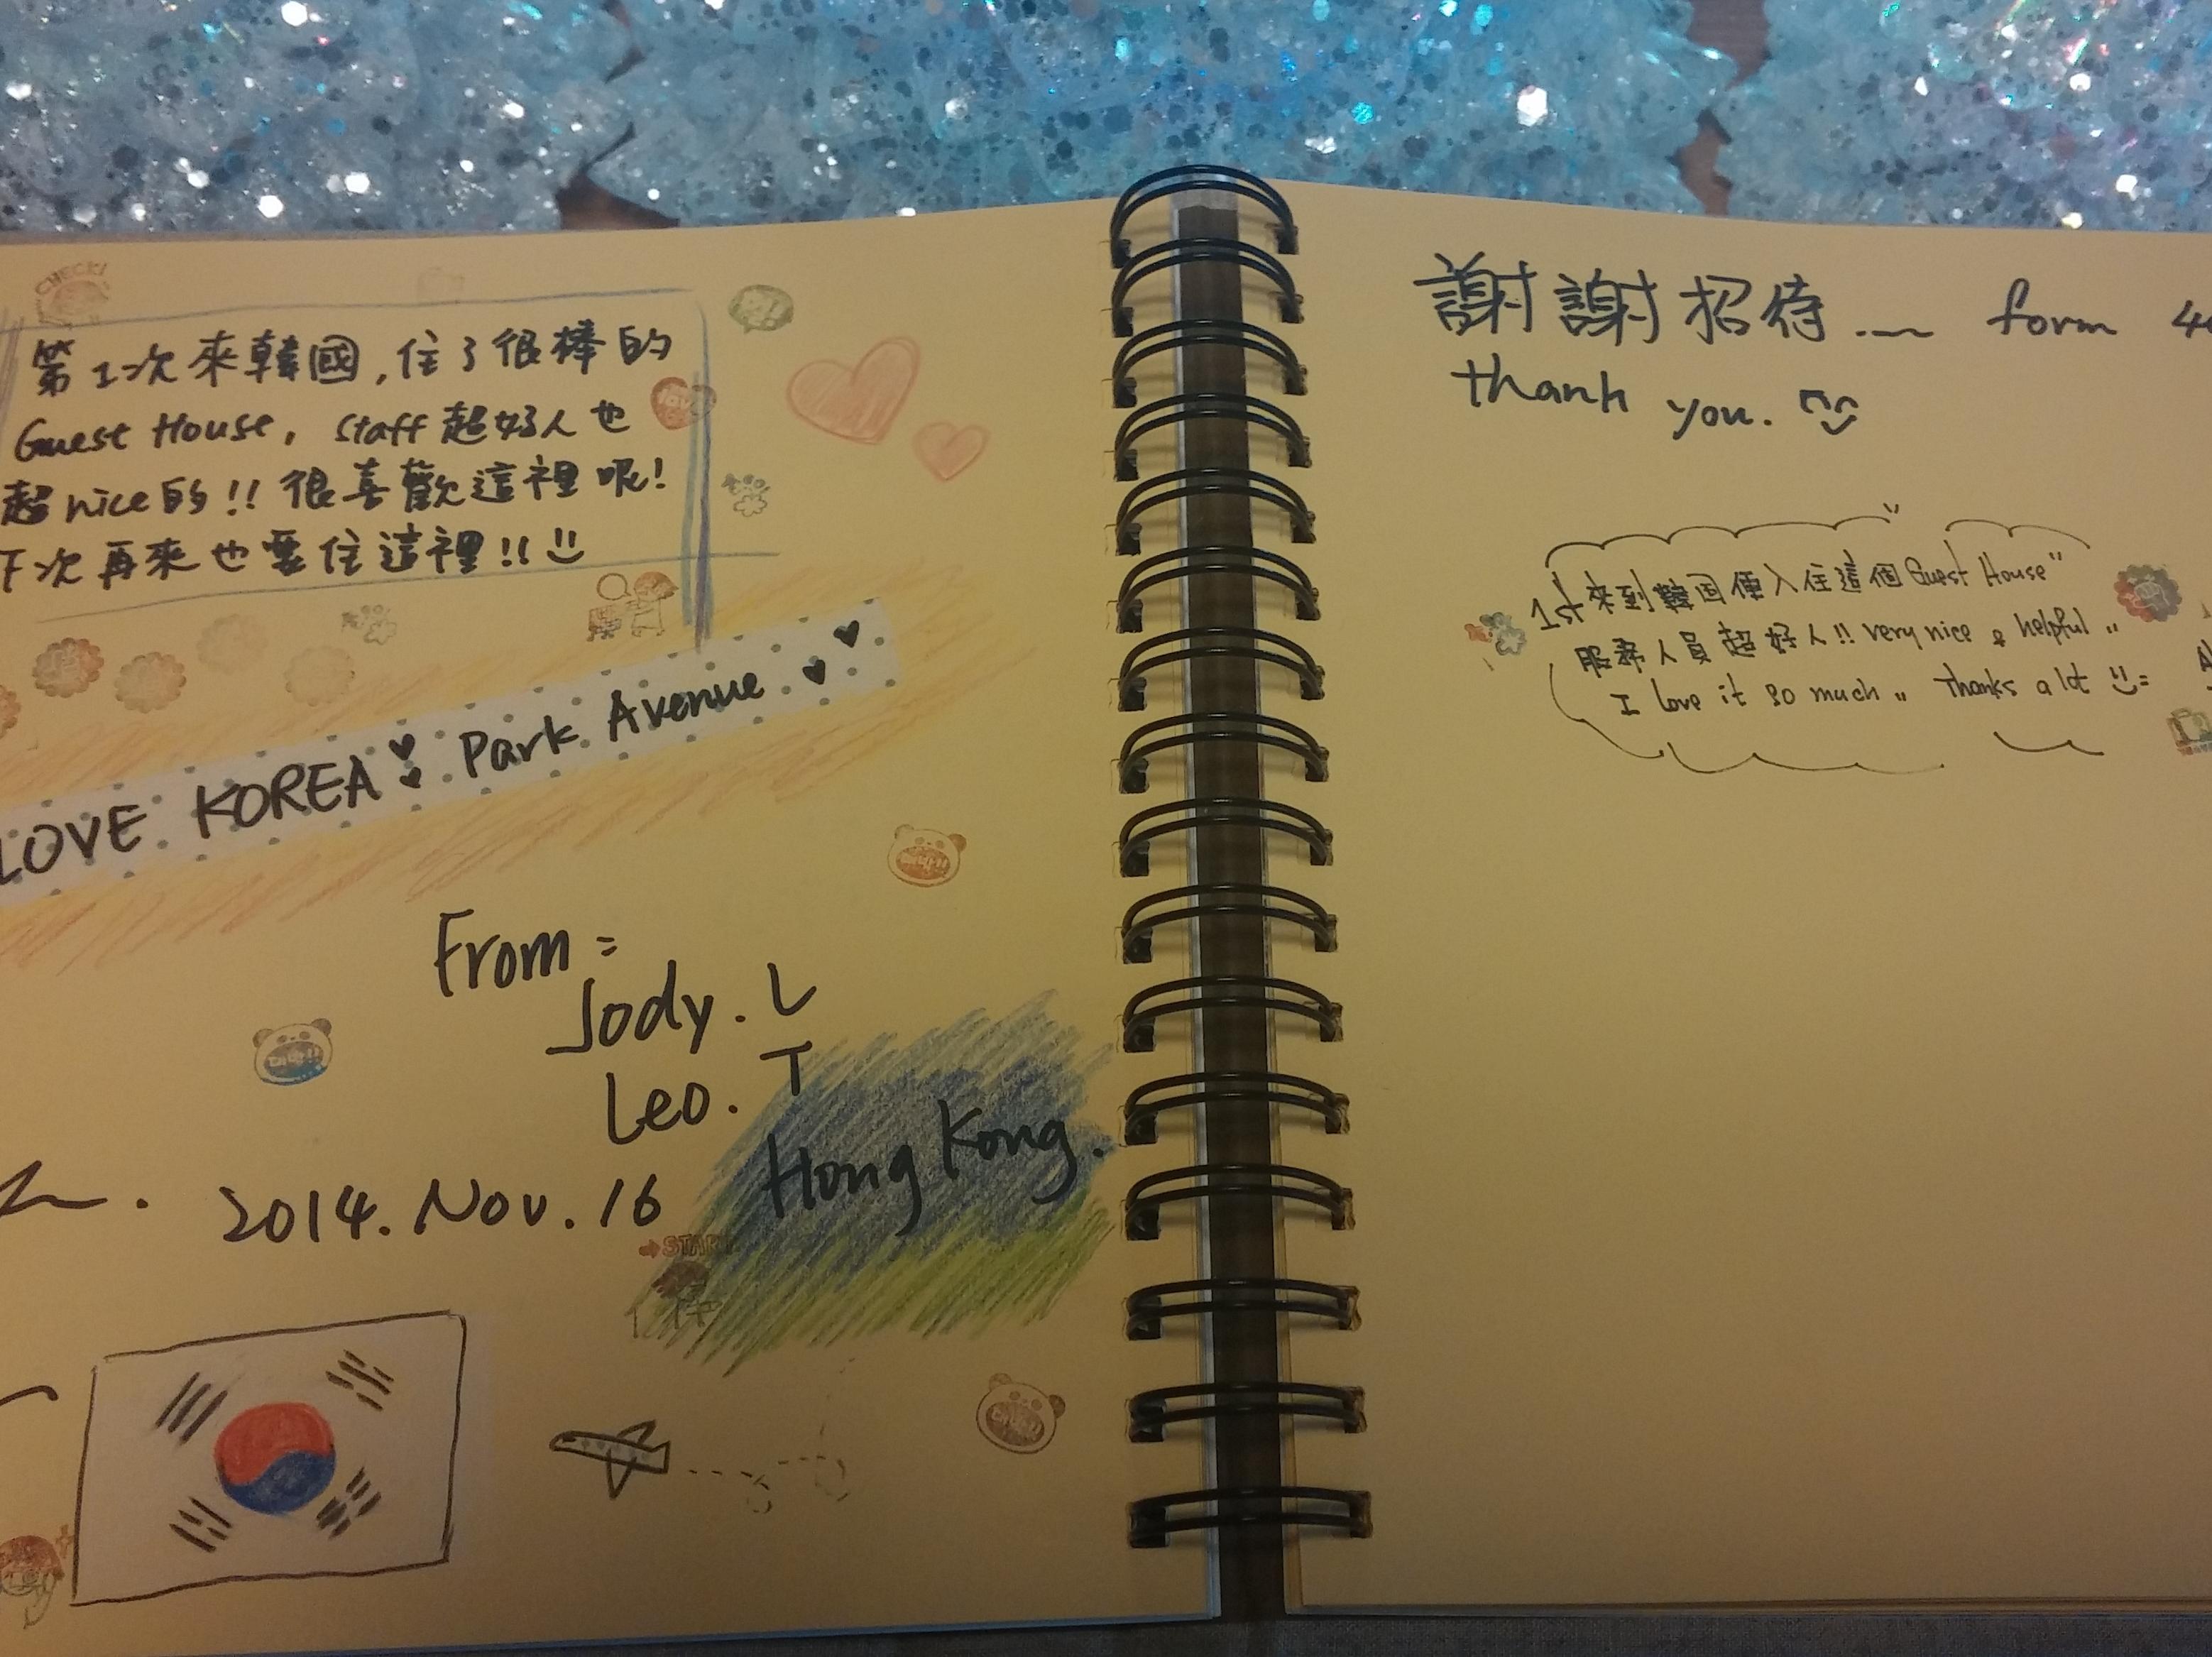 第1次來韓國,住了很棒的
Guest House, staff超好人也
超nice的!! 很喜歡這裡呢!
下次再來也要住這裡!!
LOVE KOREA Park Avenue
From:
Jody.L
Leo.T
Hong Kong.
2014.Nov.16
CHECK!
love
START
대박!!
대박!!
대박!!
謝謝招待... form
thank you.
1st來到韓国便入住這個Guest House"
服務人員超好人!! very nice & helpful..
I love it so much.. Thanks a lot